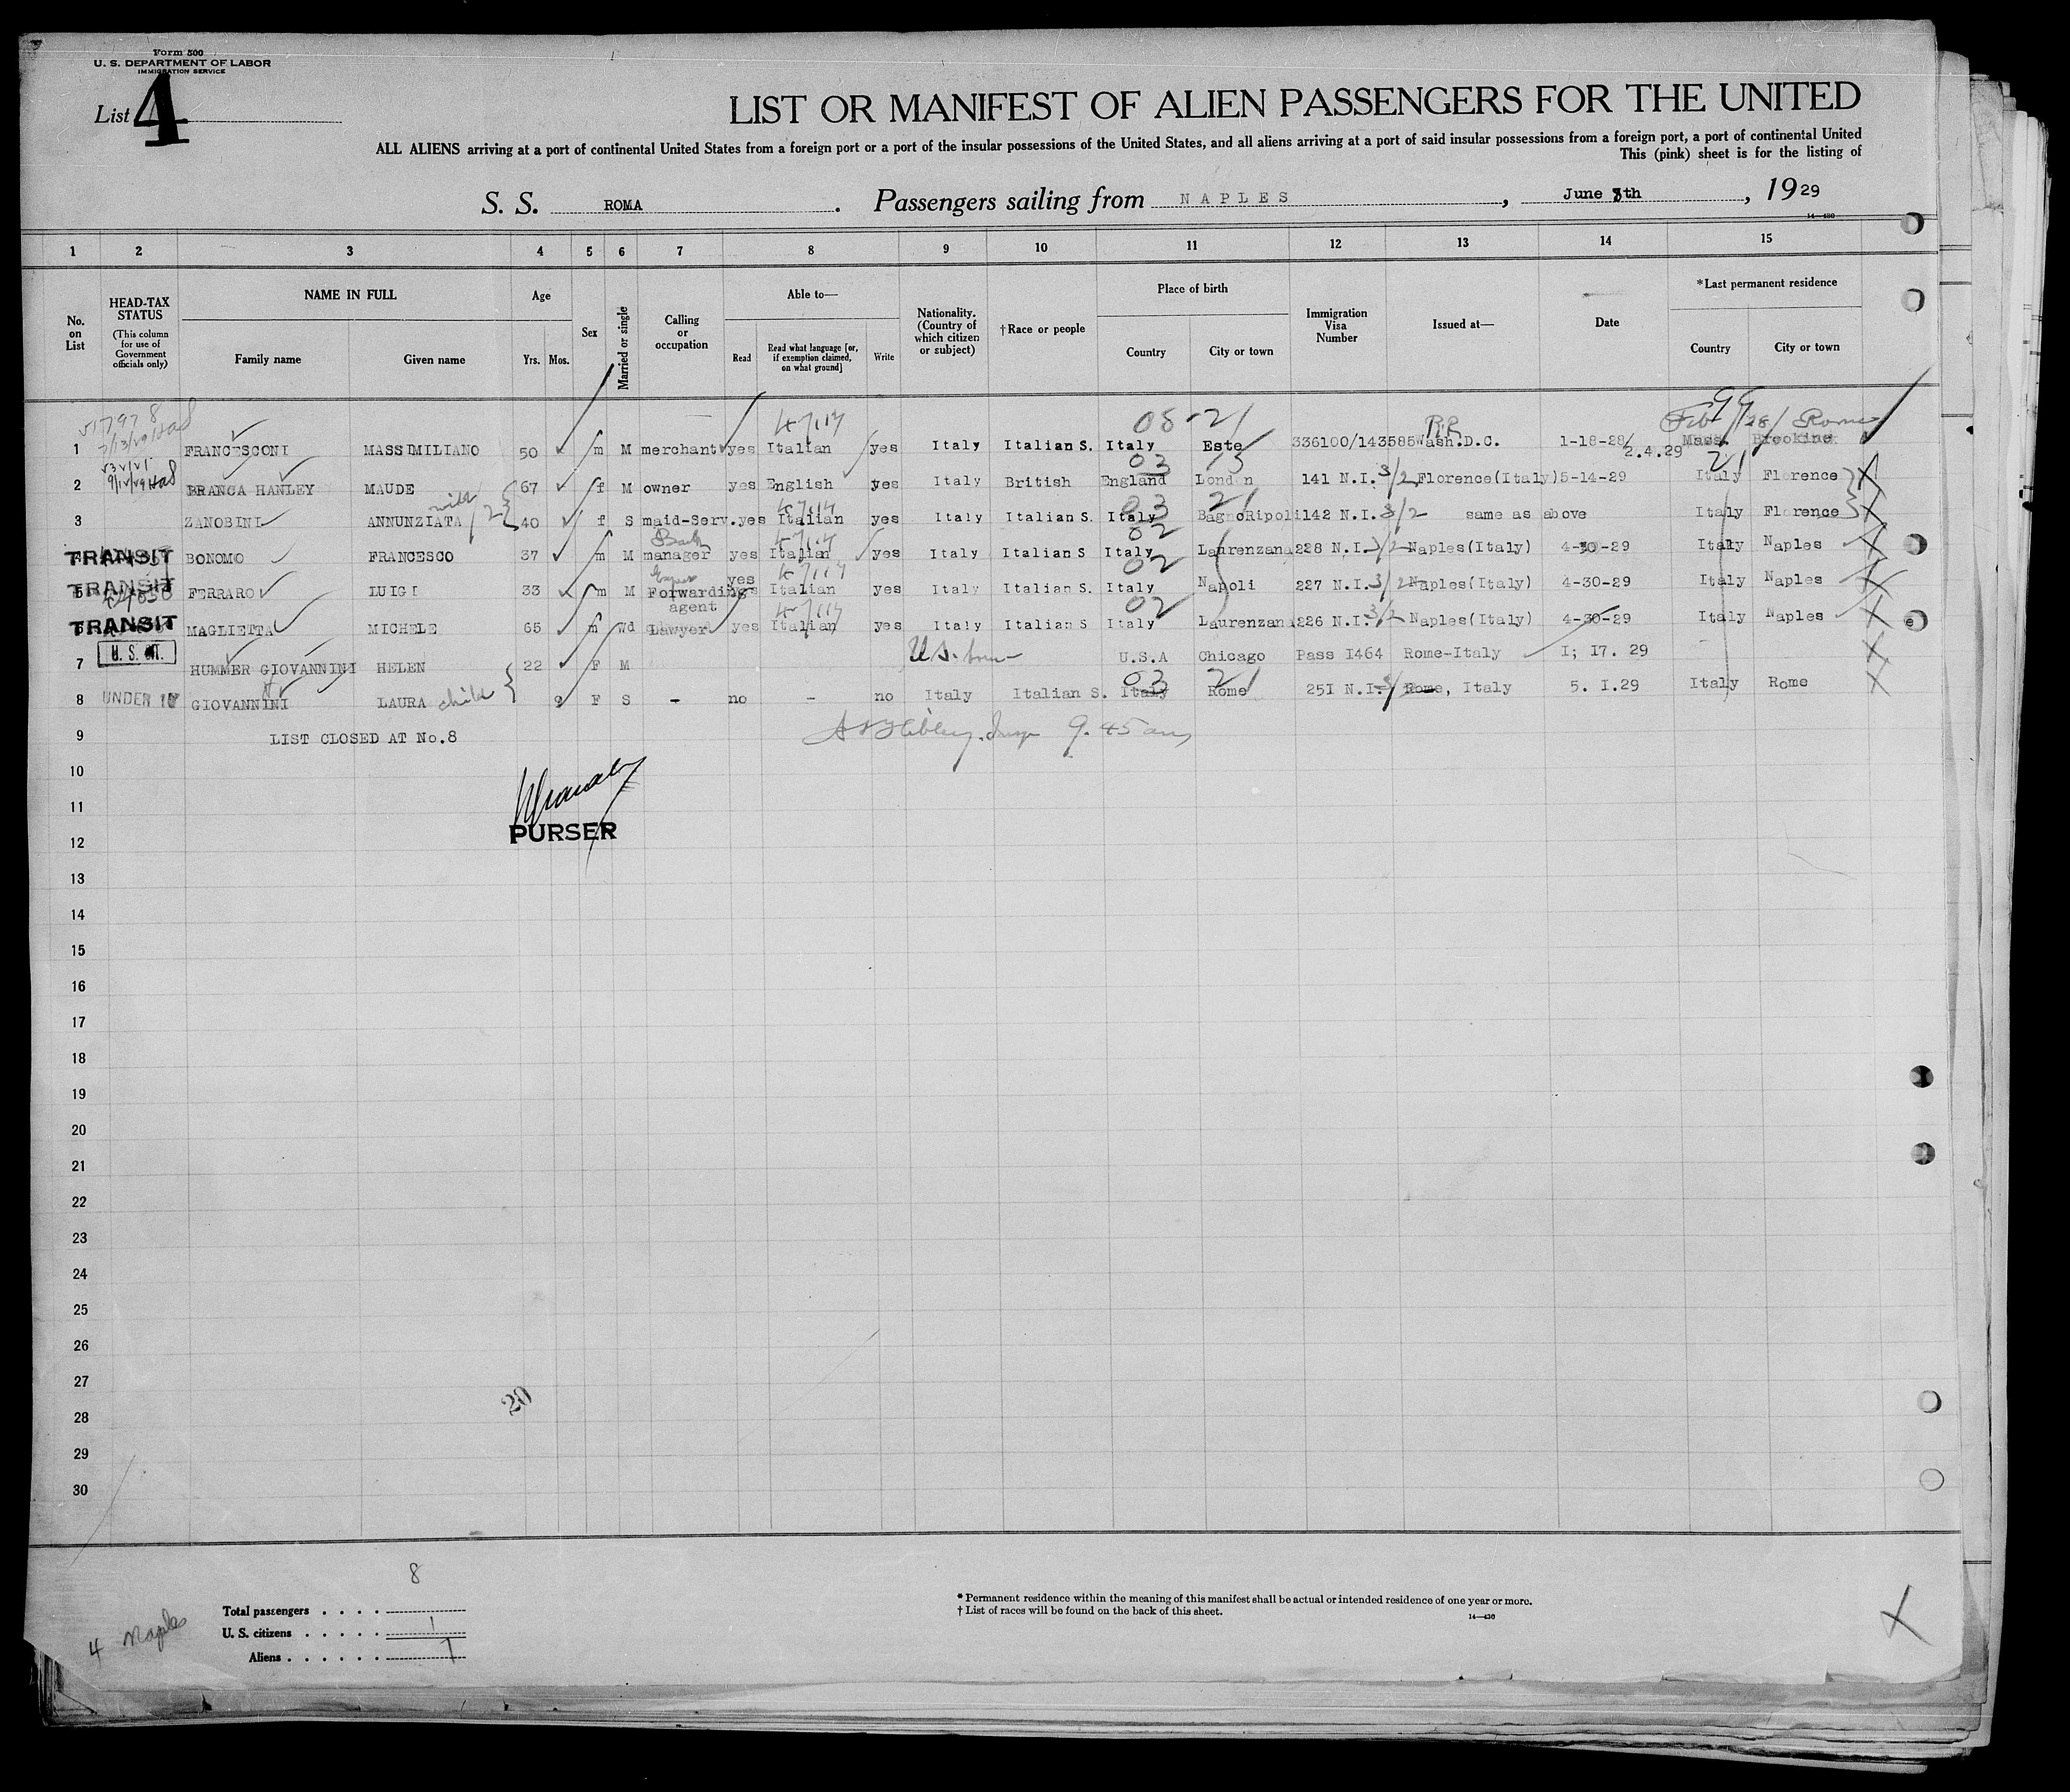 Form 500
U. S. DEPARTMENT OF LABOR
IMMIGRATION SERVICE
List 4
LIST OR MANIFEST OF ALIEN PASSENGERS FOR THE UNITED
ALL ALIENS arriving at a port of continental United States from a foreign port or a port of the insular possessions of the United States, and all aliens arriving at a port of said insular possessions from a foreign port, a port of continental United
This (pink) sheet is for the listing of
S. S. ROMA. Passengers sailing from NAPLES, June 8th, 1929
14—430
1 2 3 4 5 6 7 8 9 10 11 12 13 14 15
No. on List
HEAD-TAX STATUS
(This column for use of Government officials only)
NAME IN FULL
Family name Given name
Age
Yrs. Mos.
Sex
Married or single
Calling or occupation
Able to—
Read
Read what language [or, if exemption claimed, on what ground]
Write
Nationality. (Country of which citizen or subject)
†Race or people
Place of birth
Country City or town
Immigration Visa Number
Issued at—
Date
*Last permanent residence
Country City or town
08-21 Feb /28/ Rome
1 FRANCESCONI MASSIMILIANO 50 m M merchant yes Italian yes Italy Italian S. Italy Este 336100/143585 Wash.D.C. 1-18-28/ 2.4.29 Mass. Brookine
03 13 21
2 BRANCA HANLEY MAUDE 67 f M owner yes English yes Italy British England London 141 N.I. 3/2 Florence(Italy) 5-14-29 Italy Florence
03 21
3 ZANOBINI ANNUNZIATA 40 f S maid-Serv. yes Italian yes Italy Italian S. Italy BagnoRipoli 142 N.I. 3/2 same as above Italy Florence
Bank 02
TRANSIT BONOMO FRANCESCO 37 m M manager yes Italian yes Italy Italian S Italy Laurenzana 228 N.I. 3/2 Naples(Italy) 4-30-29 Italy Naples
02
TRANSIT 5 FERRARO LUIGI 33 m M Forwarding agent yes Italian yes Italy Italian S. Italy Napoli 227 N.I. 3/2 Naples(Italy) 4-30-29 Italy Naples
02
TRANSIT MAGLIETTA MICHELE 65 m Wd Lawyer yes Italian yes Italy Italian S Italy Laurenzana 226 N.I. 3/2 Naples(Italy) 4-30-29 Italy Naples
7 U. S. CIT. HUMMER GIOVANNINI HELEN 22 F M U.S. U.S.A Chicago Pass I464 Rome-Italy I; I7. 29
03 21
8 UNDER 16 GIOVANNINI LAURA child 2 F S - no - no Italy Italian S. Italy Rome 25I N.I. Rome, Italy 5. I.29 Italy Rome
9 LIST CLOSED AT No.8 9.45 am
10
11
PURSER
12
13
14
15
16
17
18
19
20
21
22
23
24
25
26
27
20
28
29
30
8
Total passengers . . . .
U. S. citizens . . . . . 1
Aliens . . . . . . 7
4 Naples
* Permanent residence within the meaning of this manifest shall be actual or intended residence of one year or more.
† List of races will be found on the back of this sheet.
14—430